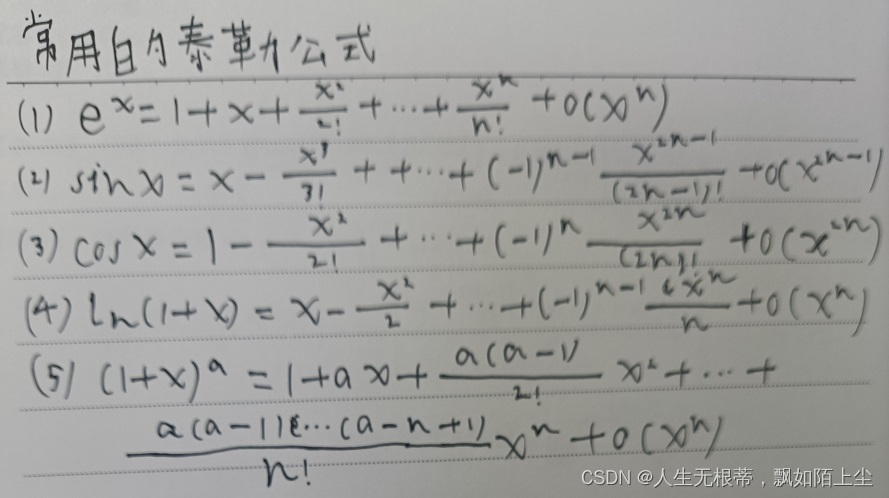 常用的泰勒公式
(1) e^x = 1 + x + x²/2! + ⋯ + x^n/n! + o(x^n)
(2) sinx = x - x³/3! + + ⋯ + (-1)^{n-1} x^{2n-1}/(2n-1)! + o(x^{2n-1})
(3) cosx = 1 - x²/2! + ⋯ + (-1)^n x^{2n}/(2n)! + o(x^{2n})
(4) ln(1+x) = x - x²/2 + ⋯ + (-1)^{n-1} x^n/n + o(x^n)
(5) (1+x)^a = 1 + ax + a(a-1)/2! x² + ⋯ +
a(a-1)(⋯(a-n+1)/n! x^n + o(x^n)
CSDN @人生无根蒂，飘如陌上尘